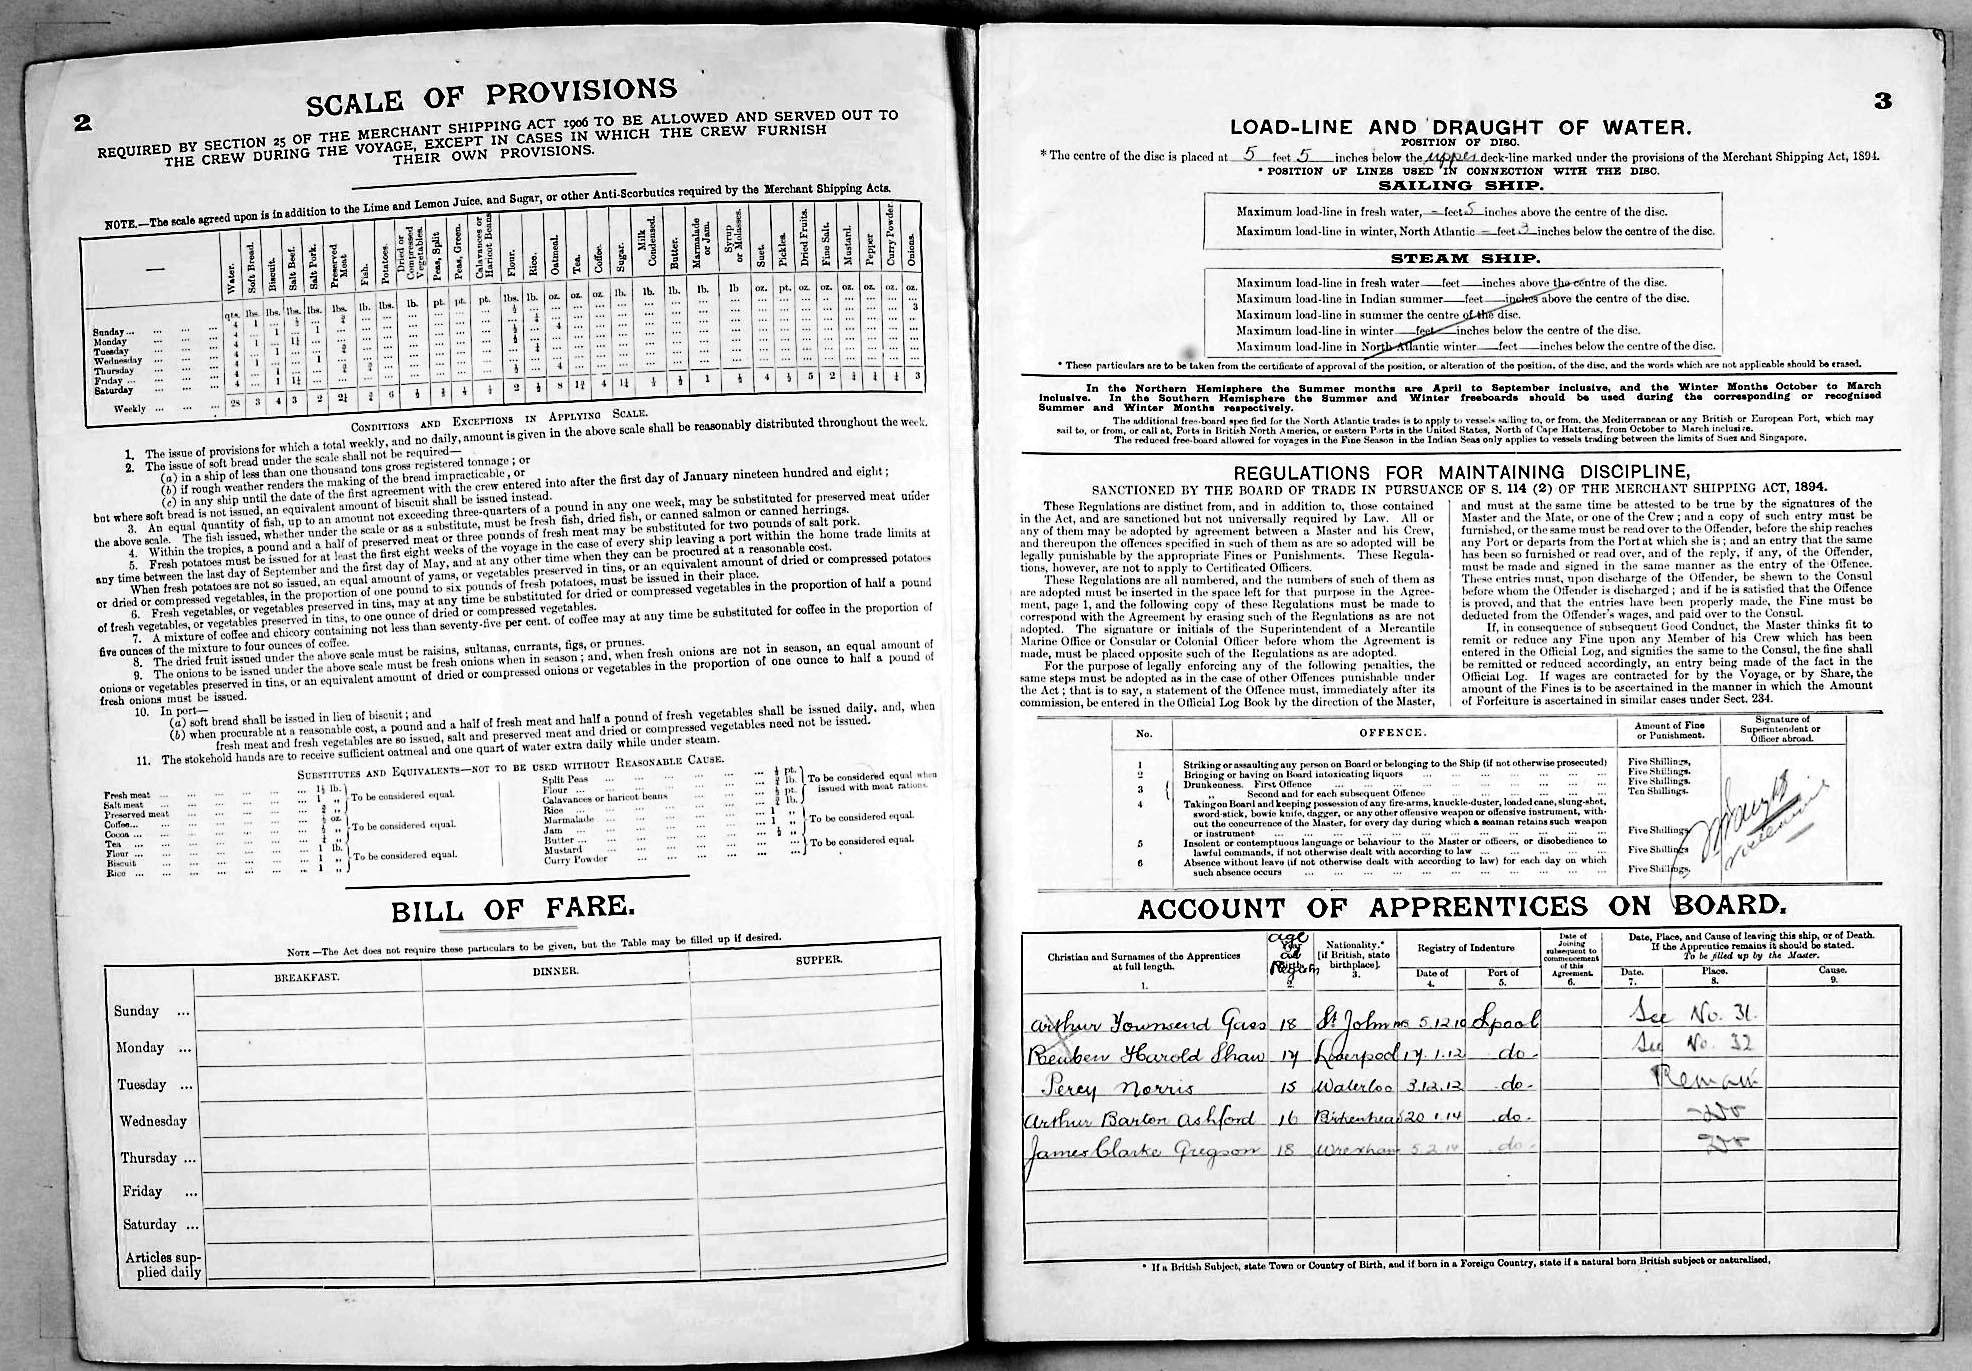 2
SCALE OF PROVISIONS
REQUIRED BY SECTION 25 OF THE MERCHANT SHIPPING ACT 1906 TO BE ALLOWED AND SERVED OUT TO
THE CREW DURING THE VOYAGE, EXCEPT IN CASES IN WHICH THE CREW FURNISH
THEIR OWN PROVISIONS.
NOTE.—The scale agreed upon is in addition to the Lime and Lemon Juice, and Sugar, or other Anti-Scorbutics required by the Merchant Shipping Acts.
— Water. Soft Bread. Biscuit. Salt Beef. Salt Pork. Preserved Meat Fish. Potatoes. Dried or Compressed Vegetables. Peas, Split Peas, Green. Calavances or Haricot Beans Flour. Rice. Oatmeal. Tea. Coffee. Sugar. Milk Condensed. Butter. Marmalade or Jam. Syrup or Molasses. Suet. Pickles. Dried Fruits. Fine Salt. Mustard. Pepper Curry Powder. Onions.
qts. lbs. lbs. lbs. lbs. lbs. lb. lbs. lb. pt. pt. pt. lbs. lb. oz. oz. oz. lb. lb. lb. lb. lb oz. pt. oz. oz. oz. oz. oz. oz.
Sunday...
Monday
Tuesday
Wednesday
Thursday
Friday ...
Saturday
Weekly ... 28 3 4 3 2
CONDITIONS AND EXCEPTIONS IN APPLYING SCALE.
1. The issue of provisions for which a total weekly, and no daily, amount is given in the above scale shall be reasonably distributed throughout the week.
2. The issue of soft bread under the scale shall not be required—
(a) in a ship of less than one thousand tons gross registered tonnage; or
(b) if rough weather renders the making of the bread impracticable, or
(c) in any ship until the date of the first agreement with the crew entered into after the first day of January nineteen hundred and eight;
but where soft bread is not issued, an equivalent amount of biscuit shall be issued instead.
3. An equal quantity of fish, up to an amount not exceeding three-quarters of a pound in any one week, may be substituted for preserved meat under
the above scale. The fish issued, whether under the scale or as a substitute, must be fresh fish, dried fish, or canned salmon or canned herrings.
4. Within the tropics, a pound and a half of preserved meat or three pounds of fresh meat may be substituted for two pounds of salt pork.
5. Fresh potatoes must be issued for at least the first eight weeks of the voyage in the case of every ship leaving a port within the home trade limits at
any time between the last day of September and the first day of May, and at any other time when they can be procured at a reasonable cost.
When fresh potatoes are not so issued, an equal amount of yams, or vegetables preserved in tins, or an equivalent amount of dried or compressed potatoes
or dried or compressed vegetables, in the proportion of one pound to six pounds of fresh potatoes, must be issued in their place.
6. Fresh vegetables, or vegetables preserved in tins, may at any time be substituted for dried or compressed vegetables in the proportion of half a pound
of fresh vegetables, or vegetables preserved in tins, to one ounce of dried or compressed vegetables.
7. A mixture of coffee and chicory containing not less than seventy-five per cent. of coffee may at any time be substituted for coffee in the proportion of
five ounces of the mixture to four ounces of coffee.
8. The dried fruit issued under the above scale must be raisins, sultanas, currants, figs, or prunes.
9. The onions to be issued under the above scale must be fresh onions when in season; and, when fresh onions are not in season, an equal amount of
onions or vegetables preserved in tins, or an equivalent amount of dried or compressed onions or vegetables in the proportion of one ounce to half a pound of
fresh onions must be issued.
10. In port—
(a) soft bread shall be issued in lieu of biscuit; and
(b) when procurable at a reasonable cost, a pound and a half of fresh meat and half a pound of fresh vegetables shall be issued daily, and, when
fresh meat and fresh vegetables are so issued, salt and preserved meat and dried or compressed vegetables need not be issued.
11. The stokehold hands are to receive sufficient oatmeal and one quart of water extra daily while under steam.
SUBSTITUTES AND EQUIVALENTS—NOT TO BE USED WITHOUT REASONABLE CAUSE.
Fresh meat
Salt meat
Preserved meat
To be considered equal.
Coffee...
Cocoa ...
Tea ...
To be considered equal.
Flour ...
Biscuit
Rice ...
To be considered equal.
Split Peas
Flour ...
Calavances or haricot beans
Rice ...
To be considered equal when
issued with meat rations.
Marmalade
Jam
Butter ...
To be considered equal.
Mustard
Curry Powder
To be considered equal.
BILL OF FARE.
NOTE—The Act does not require these particulars to be given, but the Table may be filled up if desired.
BREAKFAST. DINNER. SUPPER.
Sunday ...
Monday ...
Tuesday ...
Wednesday
Thursday ...
Friday ...
Saturday ...
Articles sup-
plied daily
3
LOAD-LINE AND DRAUGHT OF WATER.
POSITION OF DISC.
* The centre of the disc is placed at 5 feet 5 inches below the upper deck-line marked under the provisions of the Merchant Shipping Act, 1894.
* POSITION OF LINES USED IN CONNECTION WITH THE DISC.
SAILING SHIP.
Maximum load-line in fresh water, — feet 5 inches above the centre of the disc.
Maximum load-line in winter, North Atlantic — feet 3 inches below the centre of the disc.
STEAM SHIP.
Maximum load-line in fresh water — feet — inches above the centre of the disc.
Maximum load-line in Indian summer — feet — inches above the centre of the disc.
Maximum load-line in summer the centre of the disc.
Maximum load-line in winter — feet — inches below the centre of the disc.
Maximum load-line in North Atlantic winter — feet — inches below the centre of the disc.
* These particulars are to be taken from the certificate of approval of the position, or alteration of the position, of the disc, and the words which are not applicable should be erased.
In the Northern Hemisphere the Summer months are April to September inclusive, and the Winter Months October to March
inclusive. In the Southern Hemisphere the Summer and Winter freeboards should be used during the corresponding or recognised
Summer and Winter Months respectively.
The additional free-board specified for the North Atlantic trades is to apply to vessels sailing to, or from, the Mediterranean or any British or European Port, which may
sail to, or from, or call at, Ports in British North America, or eastern Ports in the United States, North of Cape Hatteras, from October to March inclusive.
The reduced free-board allowed for voyages in the Fine Season in the Indian Seas only applies to vessels trading between the limits of Suez and Singapore.
REGULATIONS FOR MAINTAINING DISCIPLINE,
SANCTIONED BY THE BOARD OF TRADE IN PURSUANCE OF S. 114 (2) OF THE MERCHANT SHIPPING ACT, 1894.
These Regulations are distinct from, and in addition to, those contained
in the Act, and are sanctioned but not universally required by Law. All or
any of them may be adopted by agreement between a Master and his Crew,
and thereupon the offences specified in such of them as are so adopted will be
legally punishable by the appropriate Fines or Punishments. These Regula-
tions, however, are not to apply to Certificated Officers.
These Regulations are all numbered, and the numbers of such of them as
are adopted must be inserted in the space left for that purpose in the Agree-
ment, page 1, and the following copy of these Regulations must be made to
correspond with the Agreement by erasing such of the Regulations as are not
adopted. The signature or initials of the Superintendent of a Mercantile
Marine Office or Consular or Colonial Officer before whom the Agreement is
made, must be placed opposite such of the Regulations as are adopted.
For the purpose of legally enforcing any of the following penalties, the
same steps must be adopted as in the case of other Offences punishable under
the Act; that is to say, a statement of the Offence must, immediately after its
commission, be entered in the Official Log Book by the direction of the Master,
and must at the same time be attested to be true by the signatures of the
Master and the Mate, or one of the Crew; and a copy of such entry must be
furnished, or the same must be read over to the Offender, before the ship reaches
any Port or departs from the Port at which she is; and an entry that the same
has been so furnished or read over, and of the reply, if any, of the Offender,
must be made and signed in the same manner as the entry of the Offence.
These entries must, upon discharge of the Offender, be shewn to the Consul
before whom the Offender is discharged; and if he is satisfied that the Offence
is proved, and that the entries have been properly made, the Fine must be
deducted from the Offender's wages, and paid over to the Consul.
If, in consequence of subsequent Good Conduct, the Master thinks fit to
remit or reduce any Fine upon any Member of his Crew which has been
entered in the Official Log, and signifies the same to the Consul, the fine shall
be remitted or reduced accordingly, an entry being made of the fact in the
Official Log. If wages are contracted for by the Voyage, or by Share, the
amount of the Fines is to be ascertained in the manner in which the Amount
of Forfeiture is ascertained in similar cases under Sect. 234.
No. OFFENCE. Amount of Fine or Punishment. Signature of Superintendent or Officer abroad.
1 Striking or assaulting any person on Board or belonging to the Ship (if not otherwise prosecuted) Five Shillings,
2 Bringing or having on Board intoxicating liquors Five Shillings.
3 Drunkenness. First Offence Five Shillings.
" Second and for each subsequent Offence Ten Shillings.
4 Taking on Board and keeping possession of any fire-arms, knuckle-duster, loaded cane, slung-shot,
sword-stick, bowie knife, dagger, or any other offensive weapon or offensive instrument, with-
out the concurrence of the Master, for every day during which a seaman retains such weapon
or instrument Five Shillings
5 Insolent or contemptuous language or behaviour to the Master or officers, or disobedience to
lawful commands, if not otherwise dealt with according to law ... Five Shillings
6 Absence without leave (if not otherwise dealt with according to law) for each day on which
such absence occurs Five Shillings.
ACCOUNT OF APPRENTICES ON BOARD.
Christian and Surnames of the Apprentices at full length. 1.
age Year of Birth. 2.
Nationality.* [if British, state birthplace]. 3.
Registry of Indenture
Date of 4. Port of 5.
Date of Joining subsequent to commencement of this Agreement. 6.
Date, Place, and Cause of leaving this ship, or of Death.
If the Apprentice remains it should be stated.
To be filled up by the Master.
Date. 7. Place. 8. Cause. 9.
Arthur Townsend Gass 18 St John NB 5.12.10 Lpool See No. 31.
Reuben Harold Shaw 17 Liverpool 17.1.12 do. See No. 32
Percy Norris 15 Waterloo 3.12.12 do. Remain
Arthur Barton Ashford 16 Birkenhead 20.1.14 do. Do
James Clarke Gregson 18 Wrexham 5.2.14 do. Do
* If a British Subject, state Town or Country of Birth, and if born in a Foreign Country, state if a natural born British subject or naturalised,